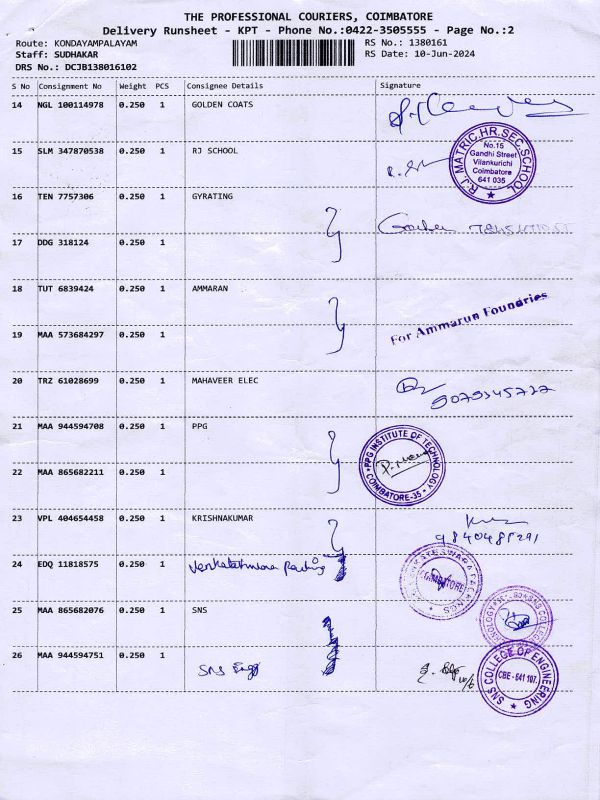 THE PROFESSIONAL COURIERS, COIMBATORE
Delivery Runsheet - KPT - Phone No.:0422-3505555 - Page No.:2
Route: KONDAYAMPALAYAM RS No.: 1380161
Staff: SUDHAKAR RS Date: 10-Jun-2024
DRS No.: DCJB138016102
S No Consignment No Weight PCS Consignee Details Signature
14 NGL 100114978 0.250 1 GOLDEN COATS
15 SLM 347870538 0.250 1 RJ SCHOOL
R.J. MATRIC.HR.SEC.SCHOOL
No.15
Gandhi Street
Vilankurichi
Coimbatore
641 035
16 TEN 7757306 0.250 1 GYRATING
17 DDG 318124 0.250 1
18 TUT 6839424 0.250 1 AMMARAN
For Ammarun Foundries
19 MAA 573684297 0.250 1
20 TRZ 61028699 0.250 1 MAHAVEER ELEC
21 MAA 944594708 0.250 1 PPG
PPG INSTITUTE OF TECHNOLOGY
COIMBATORE-35
22 MAA 865682211 0.250 1
23 VPL 404654458 0.250 1 KRISHNAKUMAR
24 EDQ 11818575 0.250 1
COIMBATORE
25 MAA 865682076 0.250 1 SNS
26 MAA 944594751 0.250 1 SNS Engg
SNS COLLEGE OF ENGINEERING
CBE - 641 107.